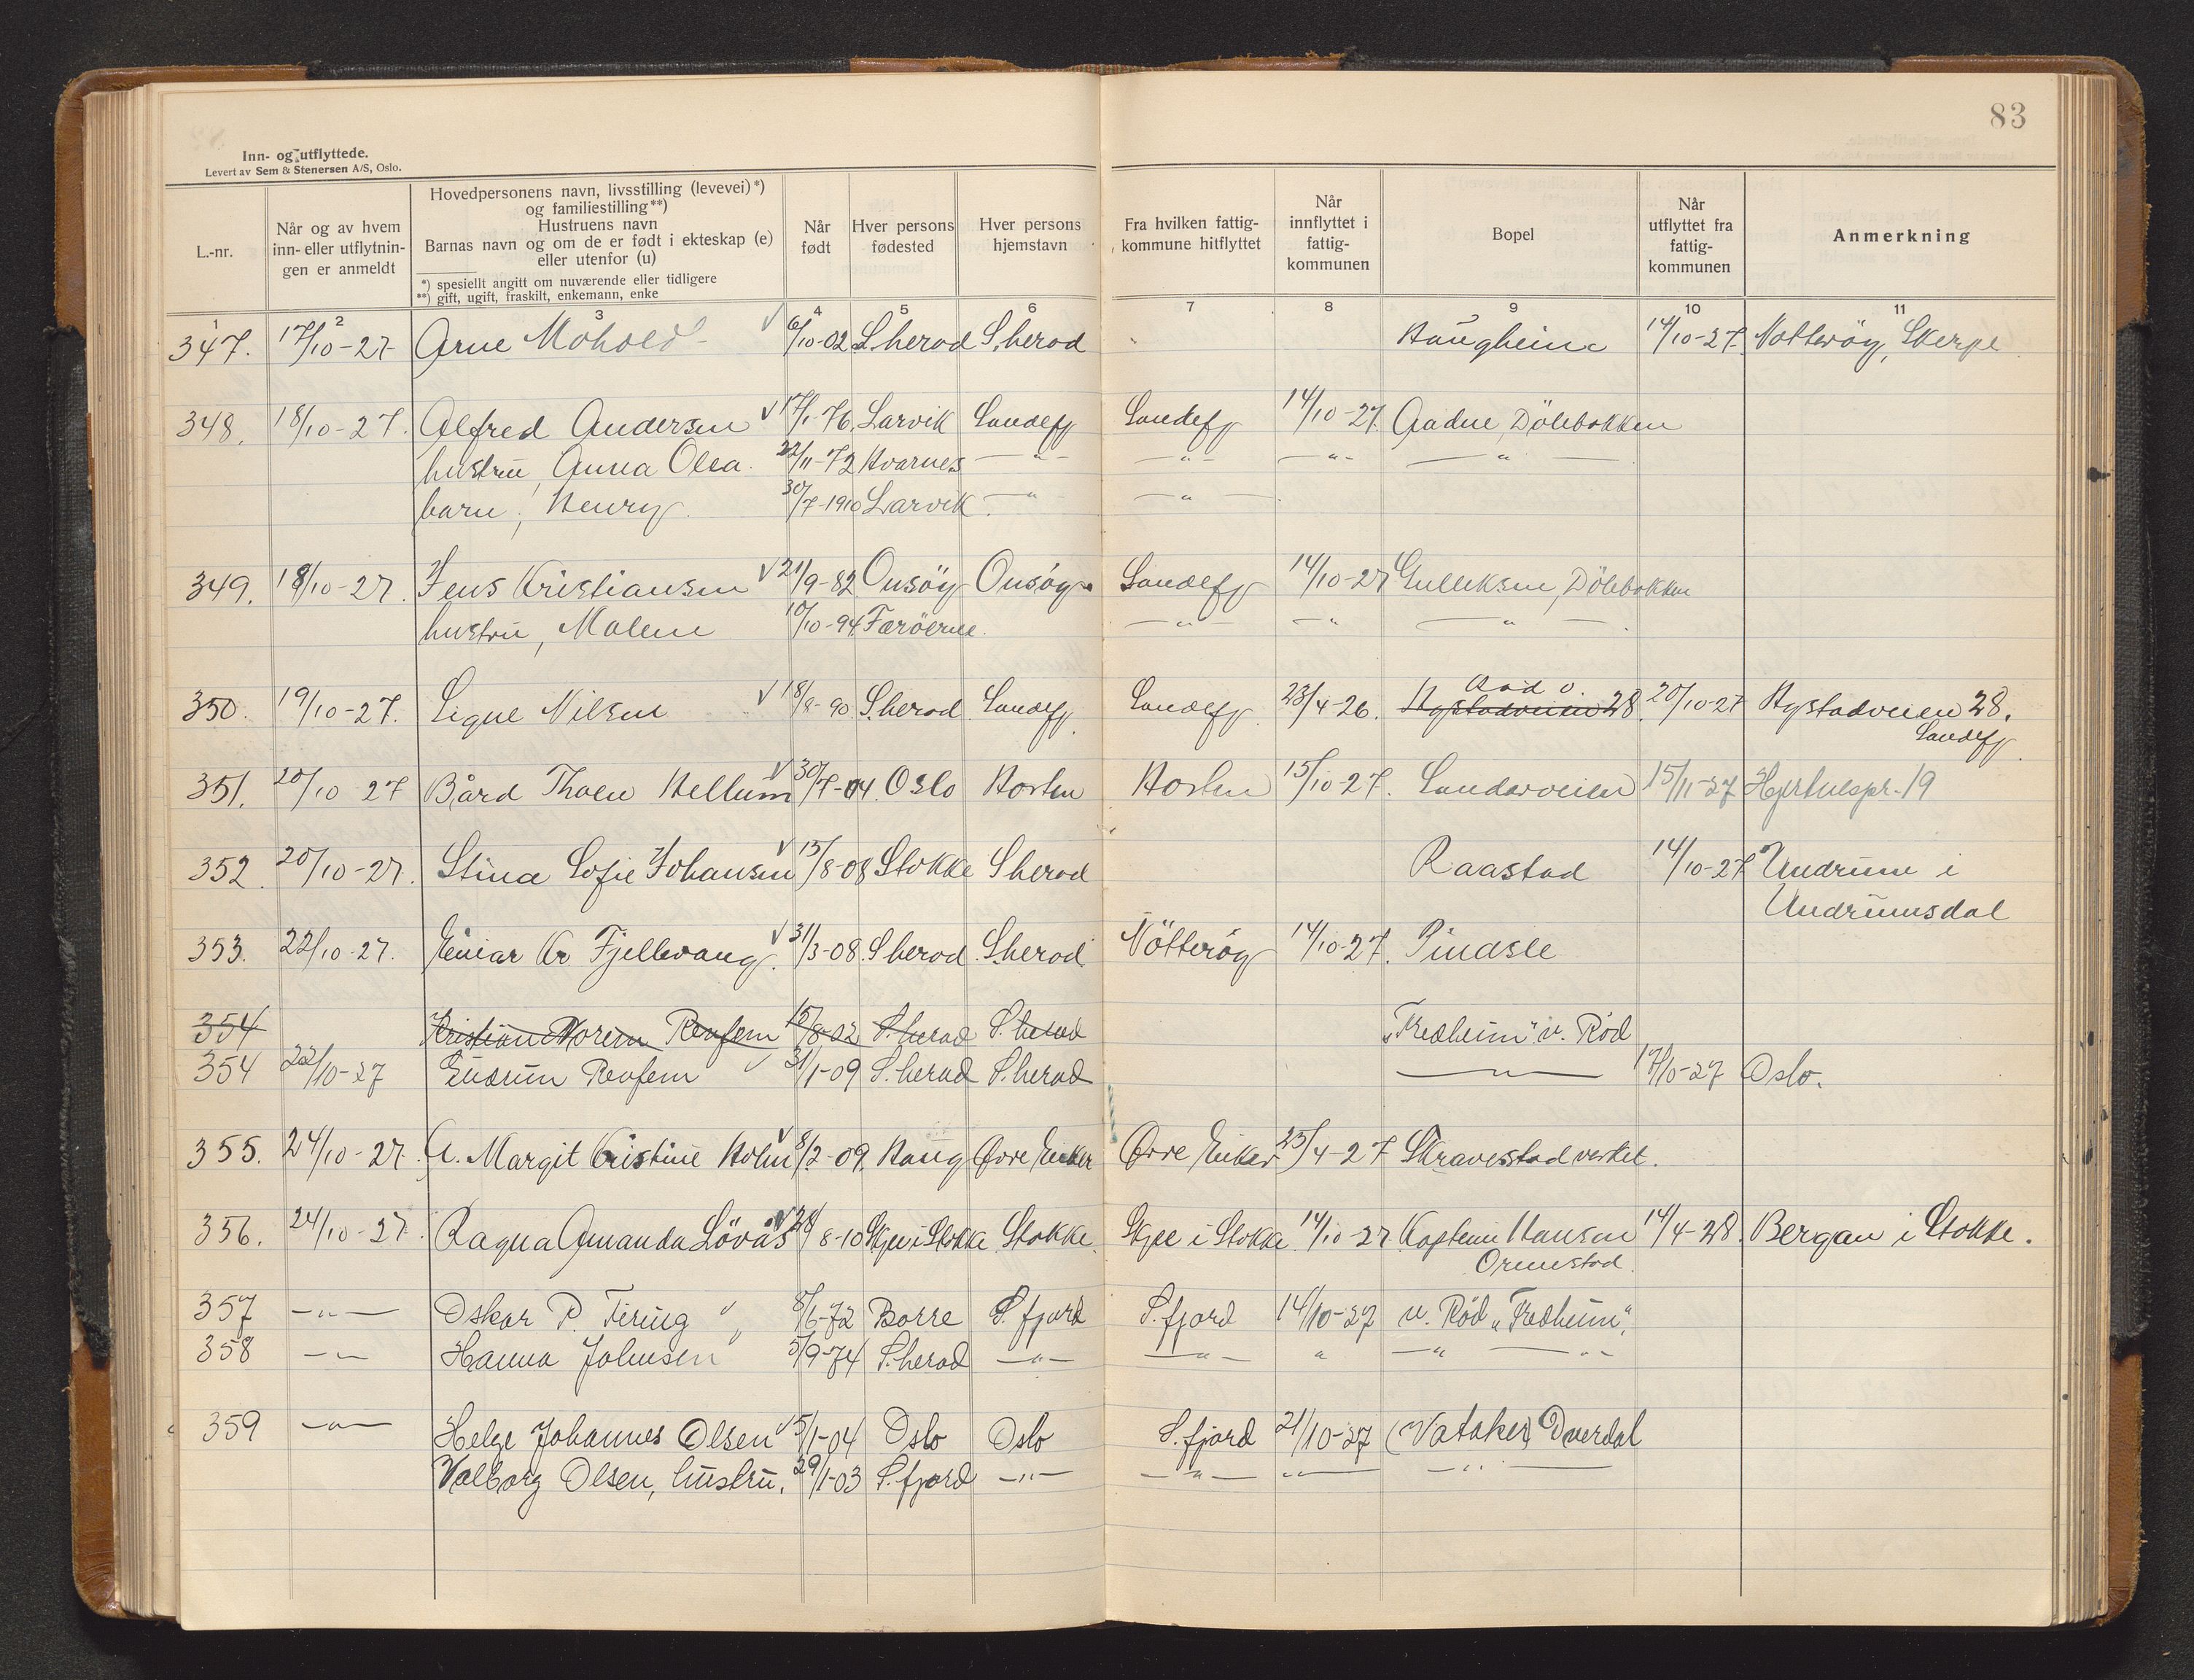 83
Inn- og utflyttede.
Levert av Sem & Stenersen A/S, Oslo.
L.-nr.
Når og av hvem
inn- eller utflytnin-
gen er anmeldt
Hovedpersonens navn, livsstilling (levevei) *)
og familiestilling **)
Hustruens navn
Barnas navn og om de er født i ekteskap (e)
eller utenfor (u)
*) spesiellt angitt om nuværende eller tidligere
**) gift, ugift, fraskilt, enkemann, enke
Når
født
Hver persons
fødested
Hver persons
hjemstavn
Fra hvilken fattig-
kommune hitflyttet
Når
innflyttet i
fattig-
kommunen
Bopel
Når
utflyttet fra
fattig-
kommunen
Anmerkning
1 2 3 4 5 6 7 8 9 10 11
347. 17/10-27 Arne Mohold 6/10-02 S.herad S.herad Haugheim 14/10-27. Nøtterøy, Skerpe
348. 18/10-27. Alfred Andersen 17/1-76 Larvik Sandefj Sandefj 14/10-27. Aadne, Dölebakken
hustru, Anna Olea. 22/11-72 Kvarnes —"— —"— —"— —"—
barn, Henry. 30/7-1910 Larvik —"— —"—
349. 18/10-27. Jens Kristiansen 21/9-82 Onsöy Onsöy Sandefj 14/10-27 Gulleksen, Dölebakken
hustru, Malene 10/10-94 Færöerne. —"— —"— —"—
350. 19/10-27. Signe Nilsen 18/8-90 S.herad Sandefj. Sandefj 23/4-26. Hystadveien 28. 20/10-27 Hystadveien 28.
Sandefj.
351. 20/10 27 Bård Thoen Hellum 30/7-04. Oslo Horten Horten 15/10-27. Sandarveien 15/11-27 Hjertnespr. 19
352. 20/10-27. Stina Sofie Johansen 15/8-08 Stokke S herad Raastad 14/10-27 Undrum i
Undrumsdal
353. 22/10-27. Einar Kr. Fjellvang. 31/3-08. S herad. S.herad Nötteröy 14/10-27. Pindsle
354 Kristian Norem Revfem 15/8-02 S.herad S.herad "Fredheim" v. Rød
354 22/10-27 Gudrun Revfem 31/1-09 S.herad S.herad —"— 17/10-27 Oslo.
355. 24/10-27. A. Margit Kristine Holm 8/2-09. Haug Øvre Eiker Øvre Eiker 25/4-27 Skravestadverket.
356. 24/10-27. Ragna Amanda Lövås 28/8-10 Skjee i Stokke Stokke. Skjee i Stokke 14/10-27 Kaptein Hansen 14/4-28. Bergan i Stokke.
Ormestad.
357 —"— Oskar P. Tiring 8/6-72 Borre S.fjord S.fjord 14/10-27 v. Rød "Fredheim".
358 —"— Hanna Johnsen 5/9-74 S.herad —"— —"— " —"— —"—
359 —"— Helge Johannes Olsen 5/1-04 Oslo Oslo S.fjord 21/10-27 (Vataker) Dverdal
Valborg Olsen, hustru. 29/1-03 S.fjord —"— —"— —"— —"—